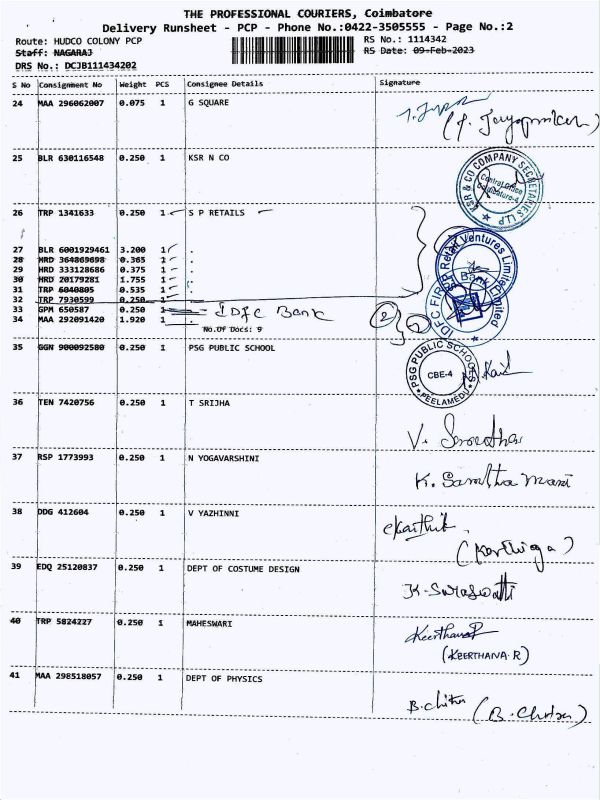 THE PROFESSIONAL COURIERS, Coimbatore
Delivery Runsheet - PCP - Phone No.:0422-3505555 - Page No.:2
Route: HUDCO COLONY PCP RS No.: 1114342
Staff: NAGARAJ RS Date: 09-Feb-2023
DRS No.: DCJB111434202
S No Consignment No Weight PCS Consignee Details Signature
24 MAA 296062007 0.075 1 G SQUARE
25 BLR 630116548 0.250 1 KSR N CO
KSR & CO COMPANY SECRETARIES LLP
Central Office Coimbatore-4
26 TRP 1341633 0.250 1 S P RETAILS
27 BLR 6001929461 3.200 1 .
28 HRD 364869698 0.365 1 .
29 HRD 333128686 0.375 1 .
30 HRD 20179281 1.755 1 .
31 TRP 6040805 0.535 1 .
32 TRP 7930599 0.250 1 .
Retail Ventures Limited
33 GPM 650587 0.250 1 IDFC Bank
34 MAA 292091420 1.920 1 . 2
IDFC FIRST Bank Limited
No.Of Docs: 9
35 GGN 900092580 0.250 1 PSG PUBLIC SCHOOL
PSG PUBLIC SCHOOLS
CBE-4
PEELAMEDU
36 TEN 7420756 0.250 1 T SRIJHA
37 RSP 1773993 0.250 1 N YOGAVARSHINI
K. Santha mani
38 DDG 412604 0.250 1 V YAZHINNI
Karthik
(Karthiga)
39 EDQ 25120837 0.250 1 DEPT OF COSTUME DESIGN
K. Saraswathi
40 TRP 5824227 0.250 1 MAHESWARI
Keerthana R
(KEERTHANA.R)
41 MAA 298518057 0.250 1 DEPT OF PHYSICS
B. chitra (B. Chitra)